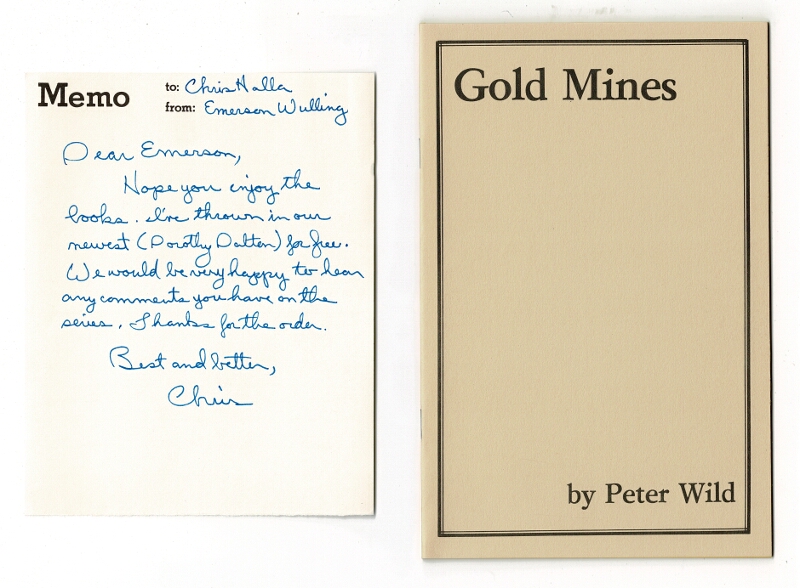 Memo
to: Chris Halla
from: Emerson Wulling
Dear Emerson,
Hope you enjoy the
books. I've thrown in our
newest (Dorothy Dalton) for free.
We would be very happy to hear
any comments you have on the
series. Thanks for the order.
Best and better,
Chris
Gold Mines
by Peter Wild